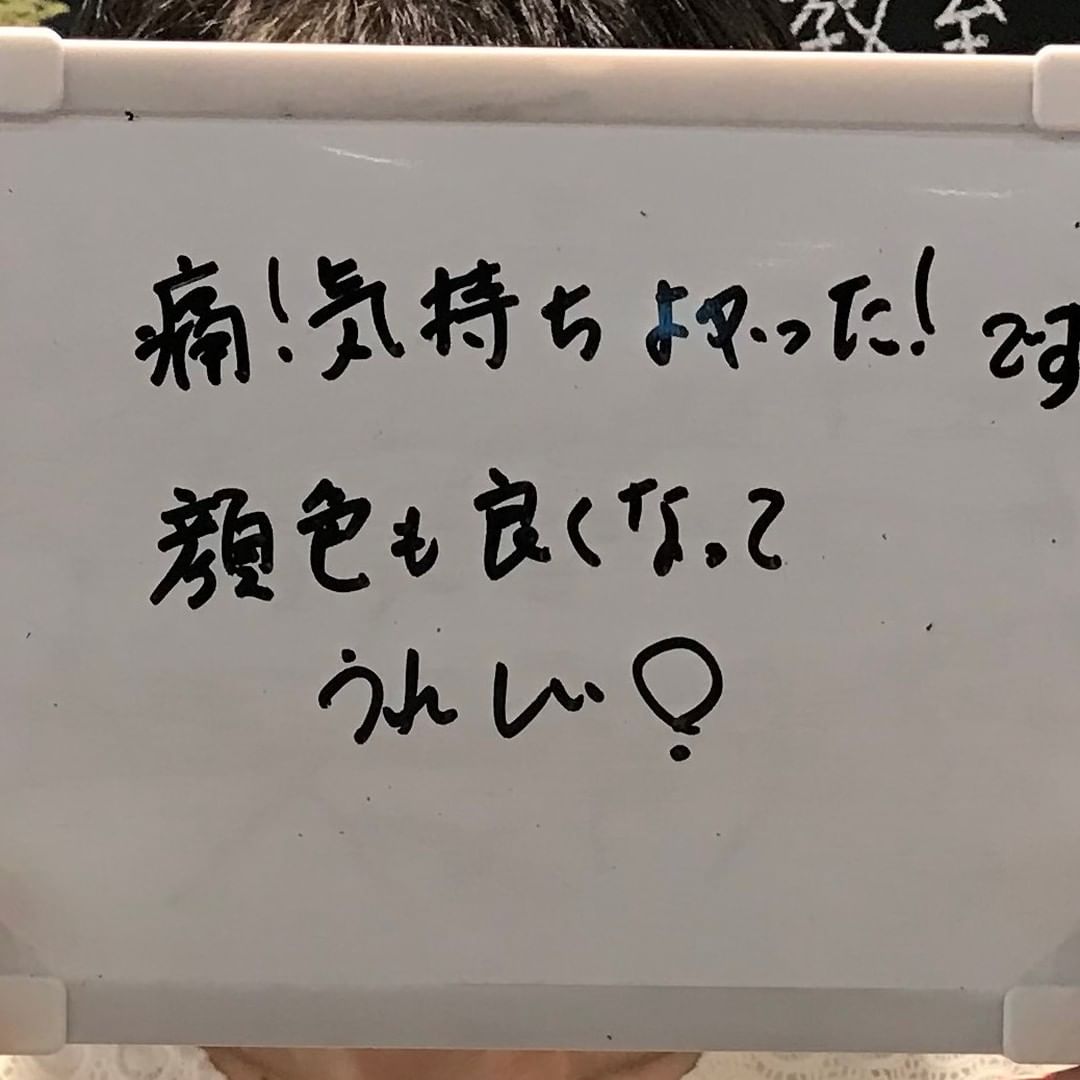 教室
痛!気持ちよかった!です
顔色も良くなって
うれしい!